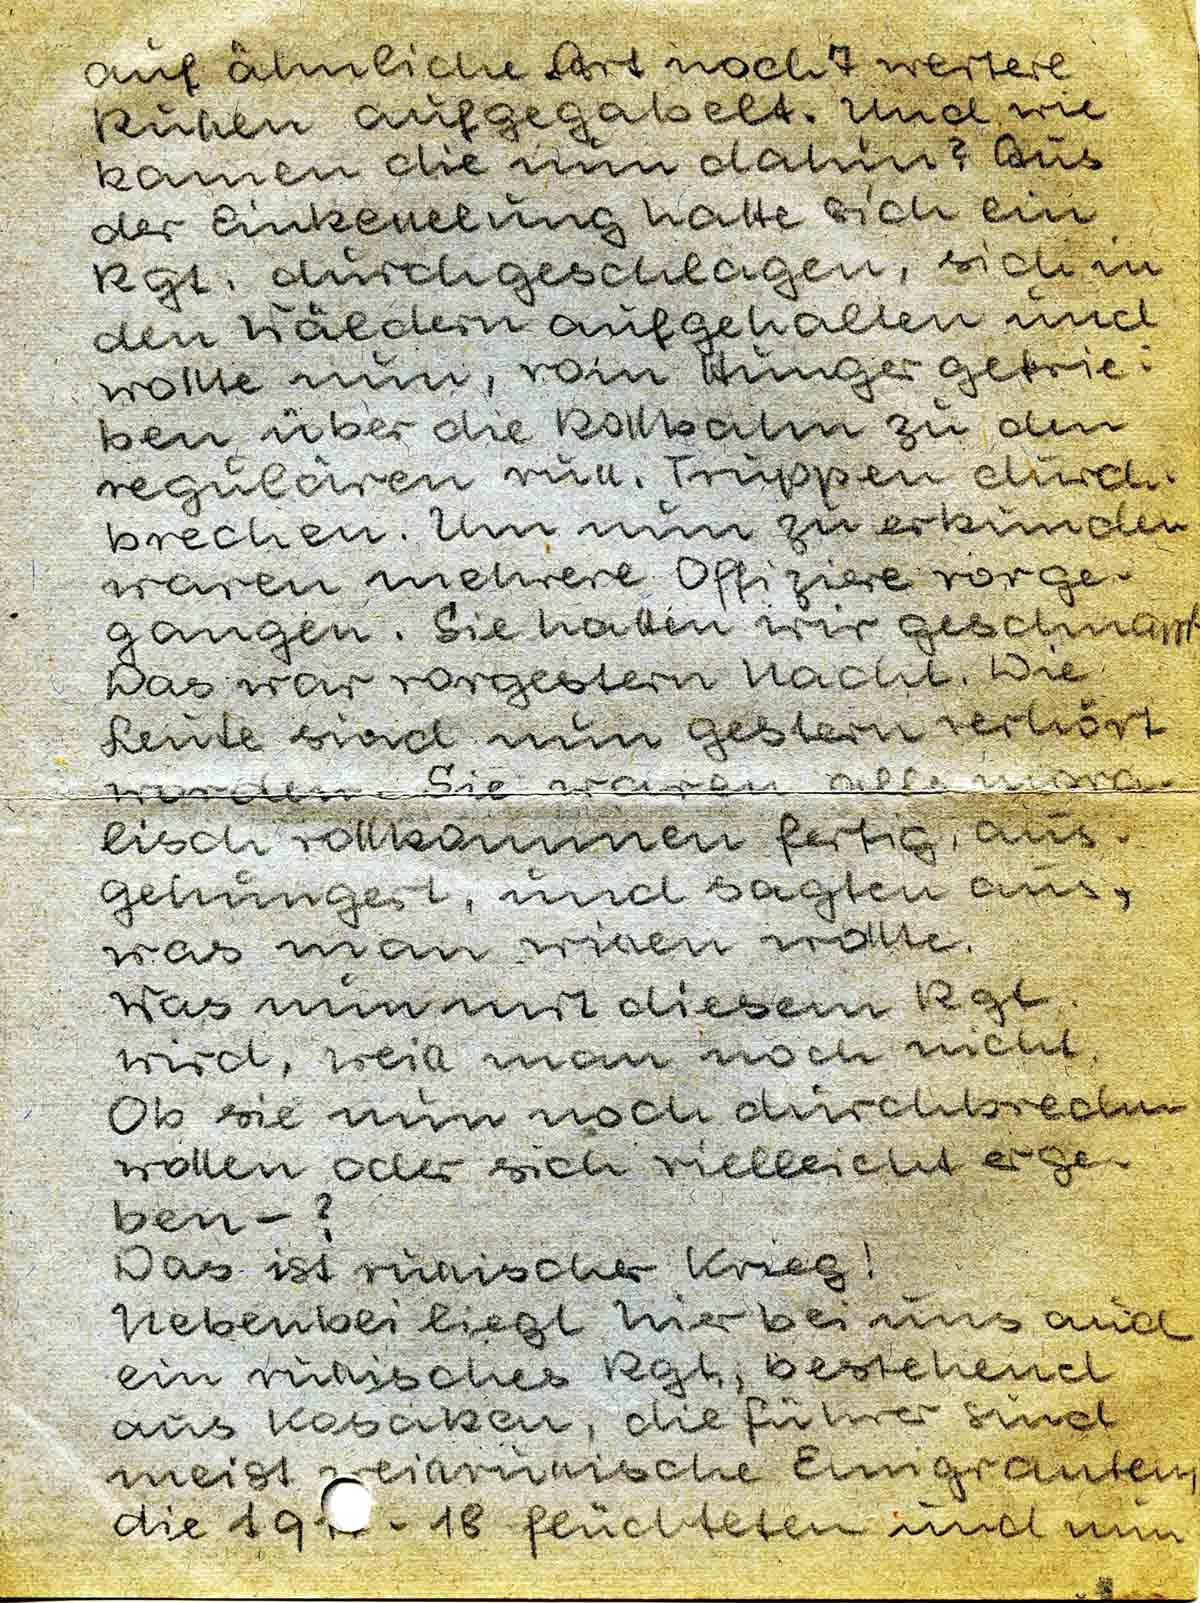 auf ähnliche Art noch 7 weitere
Ruhen aufgegabelt. Und wie
kamen die nun dahin? Aus
der Einkesselung hatte sich ein
Rgt. durchgeschlagen, sich in
den Wäldern aufgehalten und
wollte nun, vom Hunger getrie-
ben über die Rollbahn zu den
regulären russ. Truppen durch-
brechen. Um nun zu erkunden
waren mehrere Offiziere vorge-
gangen. Sie hatten wir geschnappt
Das war vorgestern Nacht. Die
Leute sind nun gestern verhört
worden. Sie waren alle mora-
lisch vollkommen fertig, aus-
gehungert, und sagten aus,
was man wissen wollte.
Was nun mit diesem Rgt.
wird, weiss man noch nicht.
Ob sie nun noch durchbrechen
wollen oder sich vielleicht erge-
ben - ?
Das ist russischer Krieg!
Nebenbei liegt hier bei uns auch
ein russisches Rgt, bestehend
aus Kosaken, die Führer sind
meist weissrussische Emigranten,
die - 18 flüchteten und nun